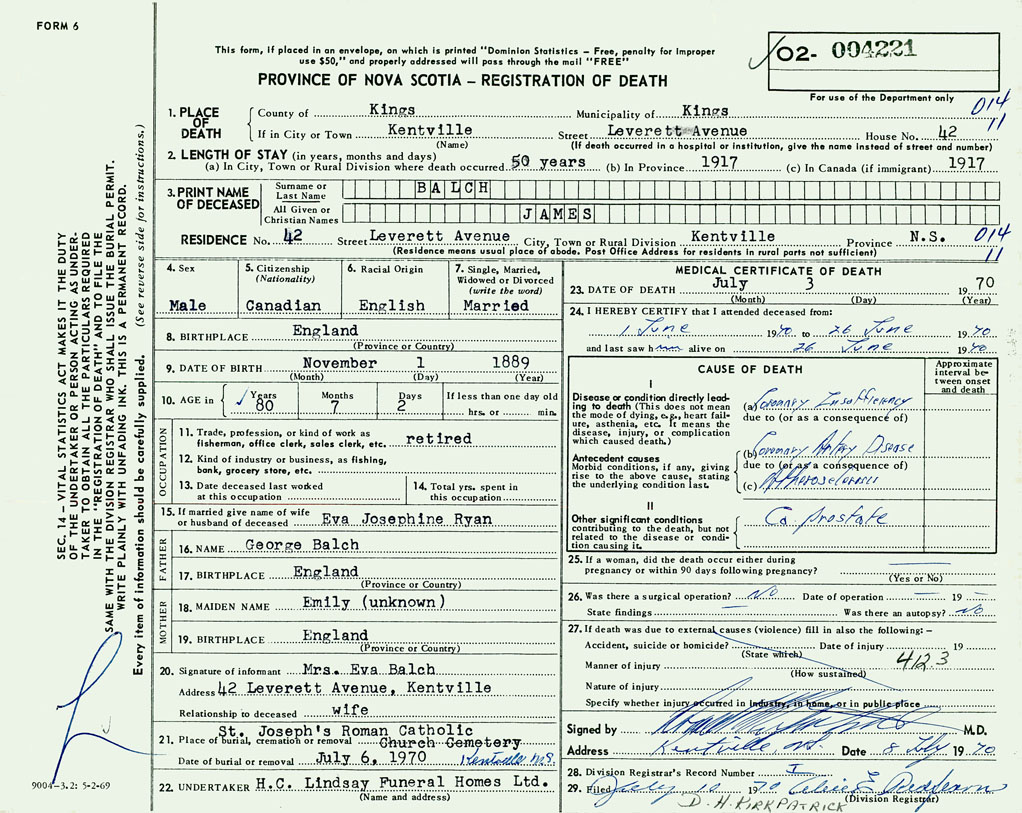 FORM 6
This form, if placed in an envelope, on which is printed "Dominion Statistics – Free, penalty for improper
use $50," and properly addressed will pass through the mail "FREE"
PROVINCE OF NOVA SCOTIA – REGISTRATION OF DEATH
02- 004221
For use of the Department only
014
11
1. PLACE OF DEATH
County of Kings Municipality of Kings
If in City or Town Kentville Street Leverett Avenue House No. 42
(Name) (If death occurred in a hospital or institution, give the name instead of street and number)
2. LENGTH OF STAY (in years, months and days)
(a) In City, Town or Rural Division where death occurred 50 years (b) In Province 1917 (c) In Canada (if immigrant) 1917
3. PRINT NAME OF DECEASED
Surname or Last Name BALCH
All Given or Christian Names JAMES
RESIDENCE No. 42 Street Leverett Avenue City, Town or Rural Division Kentville Province N.S. 014
(Residence means usual place of abode. Post Office Address for residents in rural parts not sufficient) 11
4. Sex
Male
5. Citizenship
(Nationality)
Canadian
6. Racial Origin
English
7. Single, Married,
Widowed or Divorced
(write the word)
Married
8. BIRTHPLACE England
(Province or Country)
9. DATE OF BIRTH November 1 1889
(Month) (Day) (Year)
10. AGE in Years Months Days If less than one day old
80 7 2 hrs. or min.
OCCUPATION
11. Trade, profession, or kind of work as
fisherman, office clerk, sales clerk, etc. retired
12. Kind of industry or business, as fishing,
bank, grocery store, etc.
13. Date deceased last worked
at this occupation
14. Total yrs. spent in
this occupation
15. If married give name of wife
or husband of deceased Eva Josephine Ryan
FATHER
16. NAME George Balch
17. BIRTHPLACE England
(Province or Country)
MOTHER
18. MAIDEN NAME Emily (unknown)
19. BIRTHPLACE England
(Province or Country)
20. Signature of informant Mrs. Eva Balch
Address 42 Leverett Avenue, Kentville
Relationship to deceased wife
St. Joseph's Roman Catholic
21. Place of burial, cremation or removal Church Cemetery
Date of burial or removal July 6, 1970 Kentville N.S.
22. UNDERTAKER H.C. Lindsay Funeral Homes Ltd.
(Name and address)
MEDICAL CERTIFICATE OF DEATH
23. DATE OF DEATH July 3 1970
(Month) (Day) (Year)
24. I HEREBY CERTIFY that I attended deceased from:
1 June 1970 to 26 June 1970
and last saw him alive on 26 June 1970
CAUSE OF DEATH
Approximate
interval be-
tween onset
and death
I
Disease or condition directly lead-
ing to death (This does not mean
the mode of dying, e.g., heart fail-
ure, asthenia, etc. It means the
disease, injury, or complication
which caused death.)
(a) Coronary Insufficiency
due to (or as a consequence of)
Antecedent causes
Morbid conditions, if any, giving
rise to the above cause, stating
the underlying condition last.
(b) Coronary Artery Disease
due to (or as a consequence of)
(c) Atherosclerosis
II
Other significant conditions
contributing to the death, but not
related to the disease or condi-
tion causing it.
Ca. prostate
25. If a woman, did the death occur either during
pregnancy or within 90 days following pregnancy?
(Yes or No)
26. Was there a surgical operation? No Date of operation — 19 —
State findings — Was there an autopsy? No
27. If death was due to external causes (violence) fill in also the following: –
Accident, suicide or homicide? Date of injury 19
(State which) 412.3
Manner of injury
(How sustained)
Nature of injury
Specify whether injury occurred in industry, in home, or in public place
Signed by M.D.
Address Kentville, N.S. Date 8 July 1970
28. Division Registrar's Record Number I
29. Filed July 10 1970
(Division Registrar)
D. H. KIRKPATRICK
SEC. 14 – VITAL STATISTICS ACT MAKES IT THE DUTY
OF THE UNDERTAKER OR PERSON ACTING AS UNDER-
TAKER TO OBTAIN ALL THE PARTICULARS REQUIRED
IN THE "REGISTRATION OF DEATH" AND TO FILE THE
SAME WITH THE DIVISION REGISTRAR WHO SHALL ISSUE THE BURIAL PERMIT.
WRITE PLAINLY WITH UNFADING INK. THIS IS A PERMANENT RECORD.
Every item of information should be carefully supplied. (See reverse side for instructions.)
9004-3.2: 5-2-69